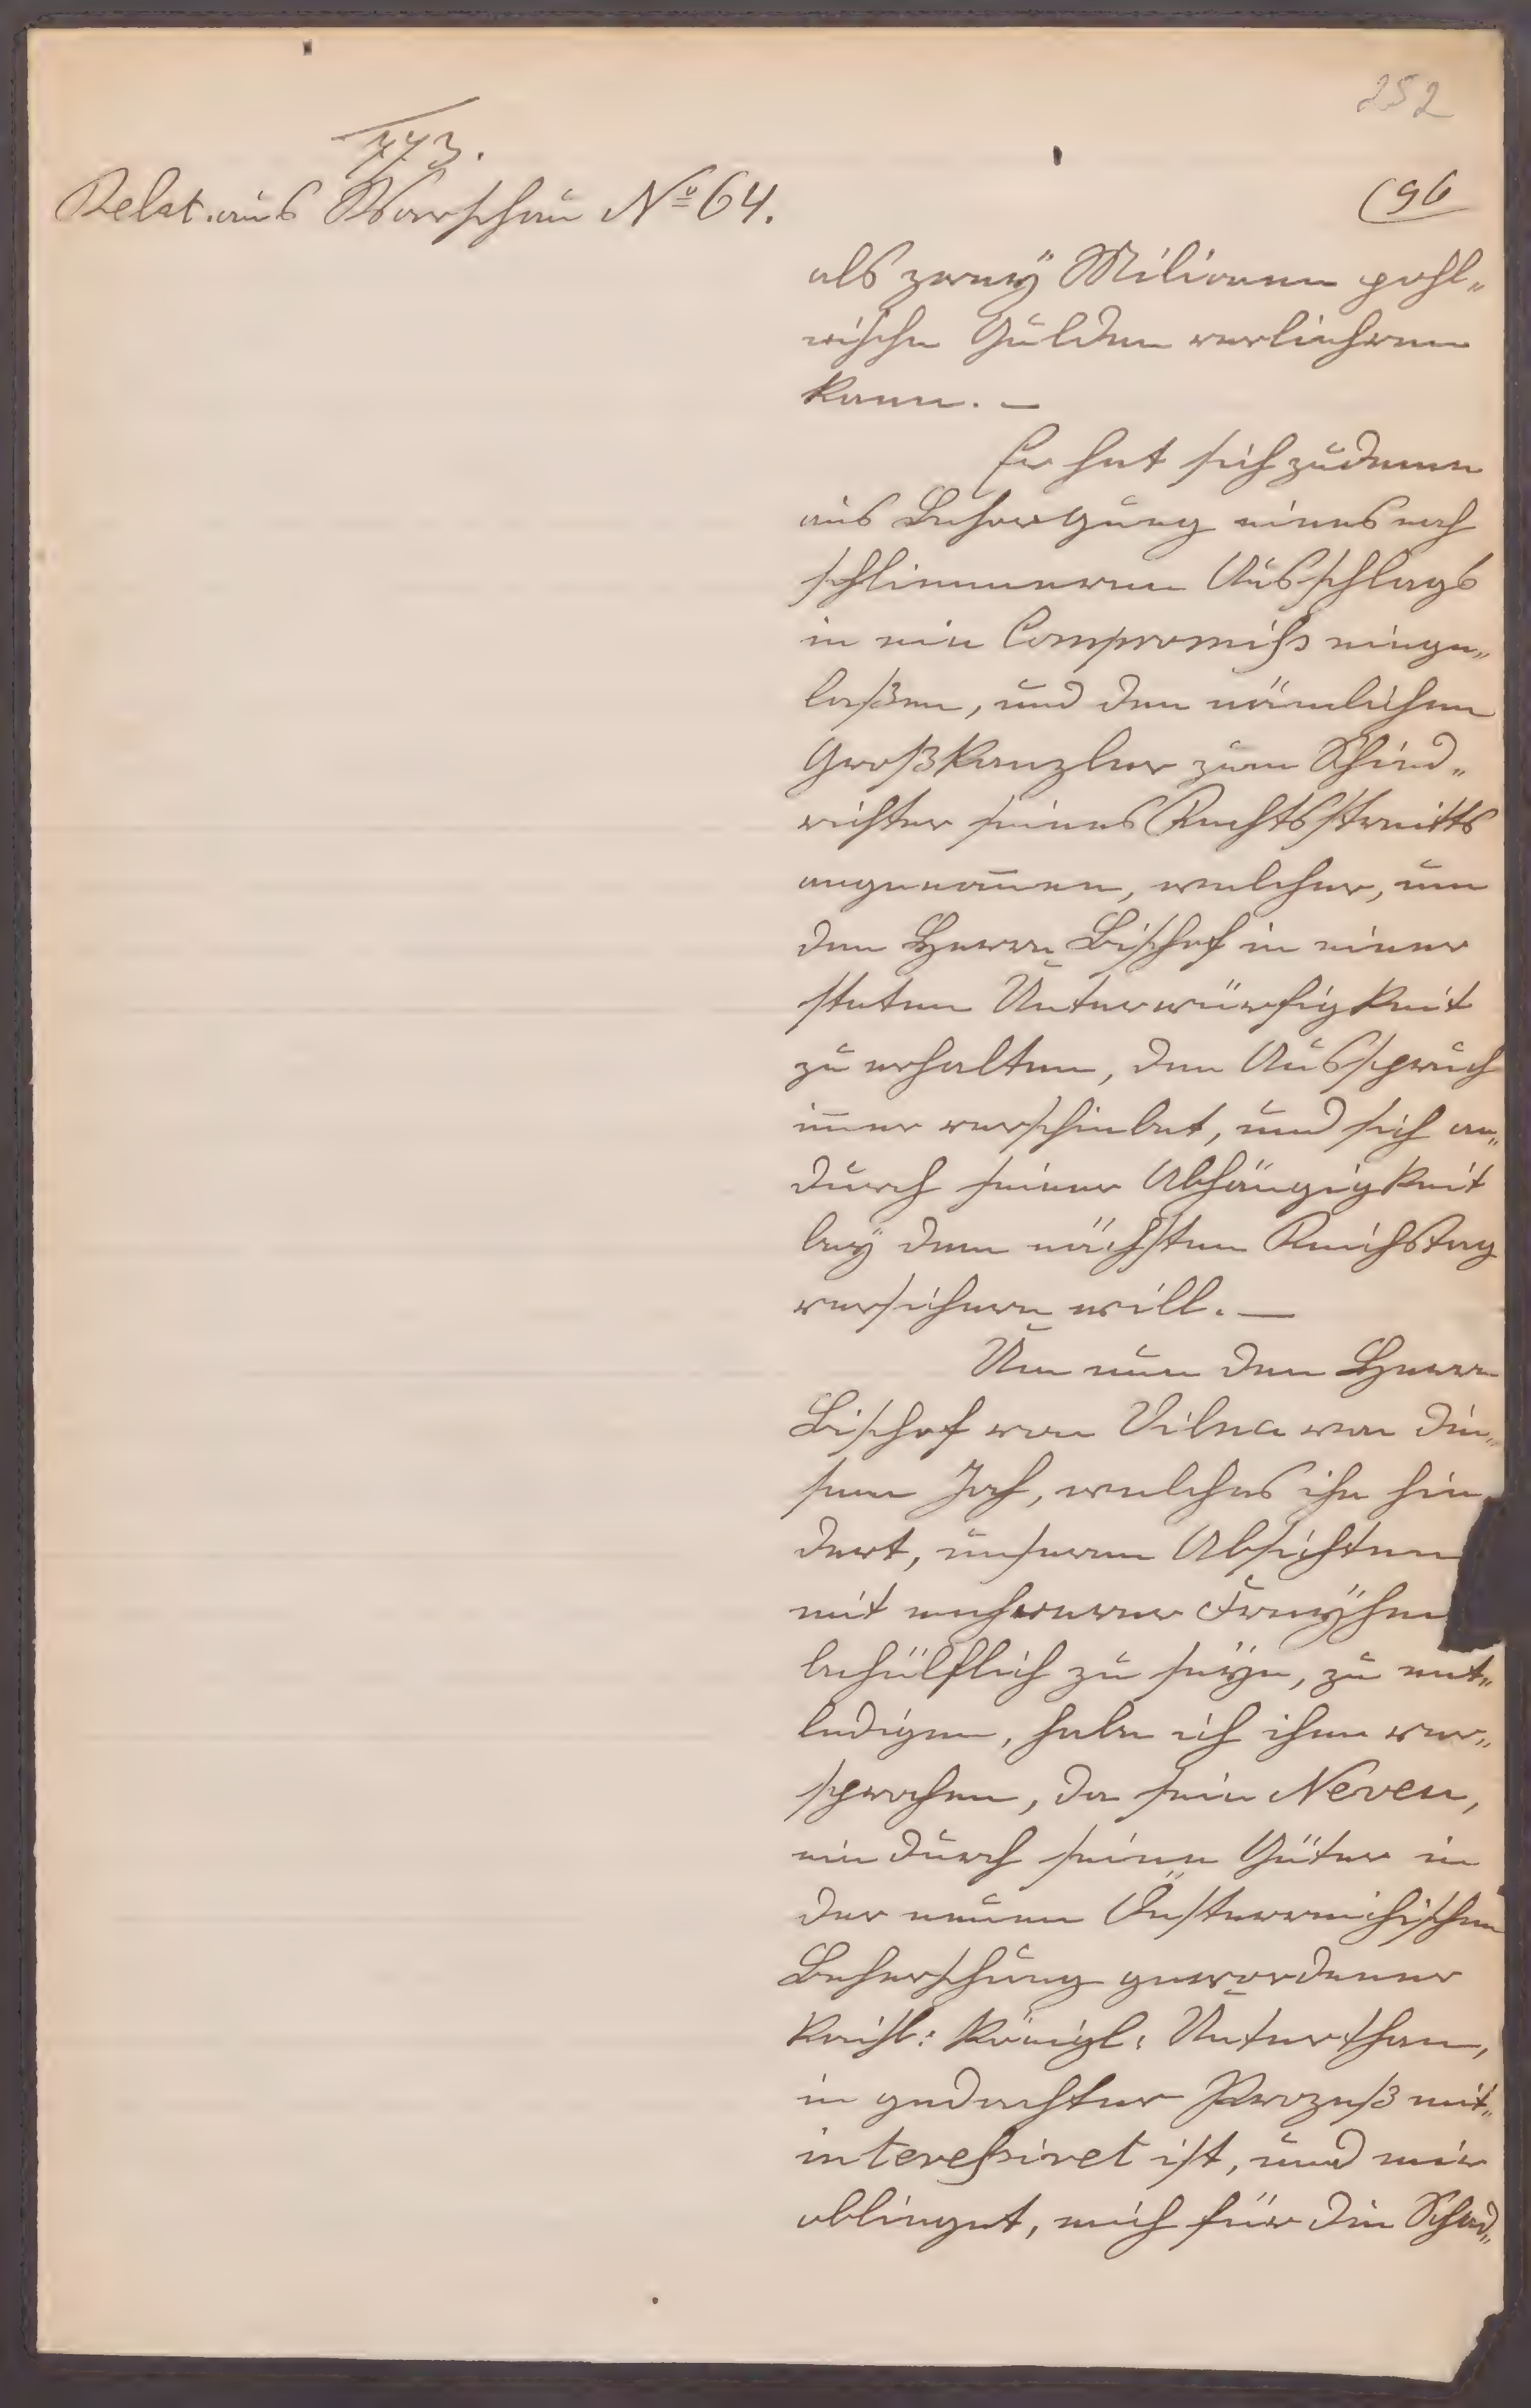 252
773.
Relat. aus Warschau Nº 64.
(96
als zweÿ Milionen pohl„
nische Gulden verliehren
kann. —
Er hat sich zudeme
aus Besorgung eines noch
schlimmeren Ausschlags
in ein Compromiss einge„
laßen, und den nämlichen
Großkanzler zum Schied„
richter seines Rechtsstreitts
angenom̄en, welcher, um
den Herrn Bischof in einer
steten Unterwürfigkeit
zu erhalten, den Ausspruch
im̄er verschiebet, und sich an„
durch seiner Abhängigkeit
beÿ dem nächsten Reichstag
versichern will. —
Um nun den Herrn
Bischof von Vilna von die„
sem Joch, welches ihn hin
dert, unseren Absichten
mit mehrerer Freÿhei
behülflich zu seÿn, zu ent„
ledigen, habe ich ihm ver„
sprochen, da sein Neveu,
ein durch seine Güter in
der neuen Öesterreichischen
Beherschung gewordener
Kaisl: Königl: Unterthan,
in gedachter Prozeß mit„
interessiret ist, und mir
obliegt, mich für die Schad„